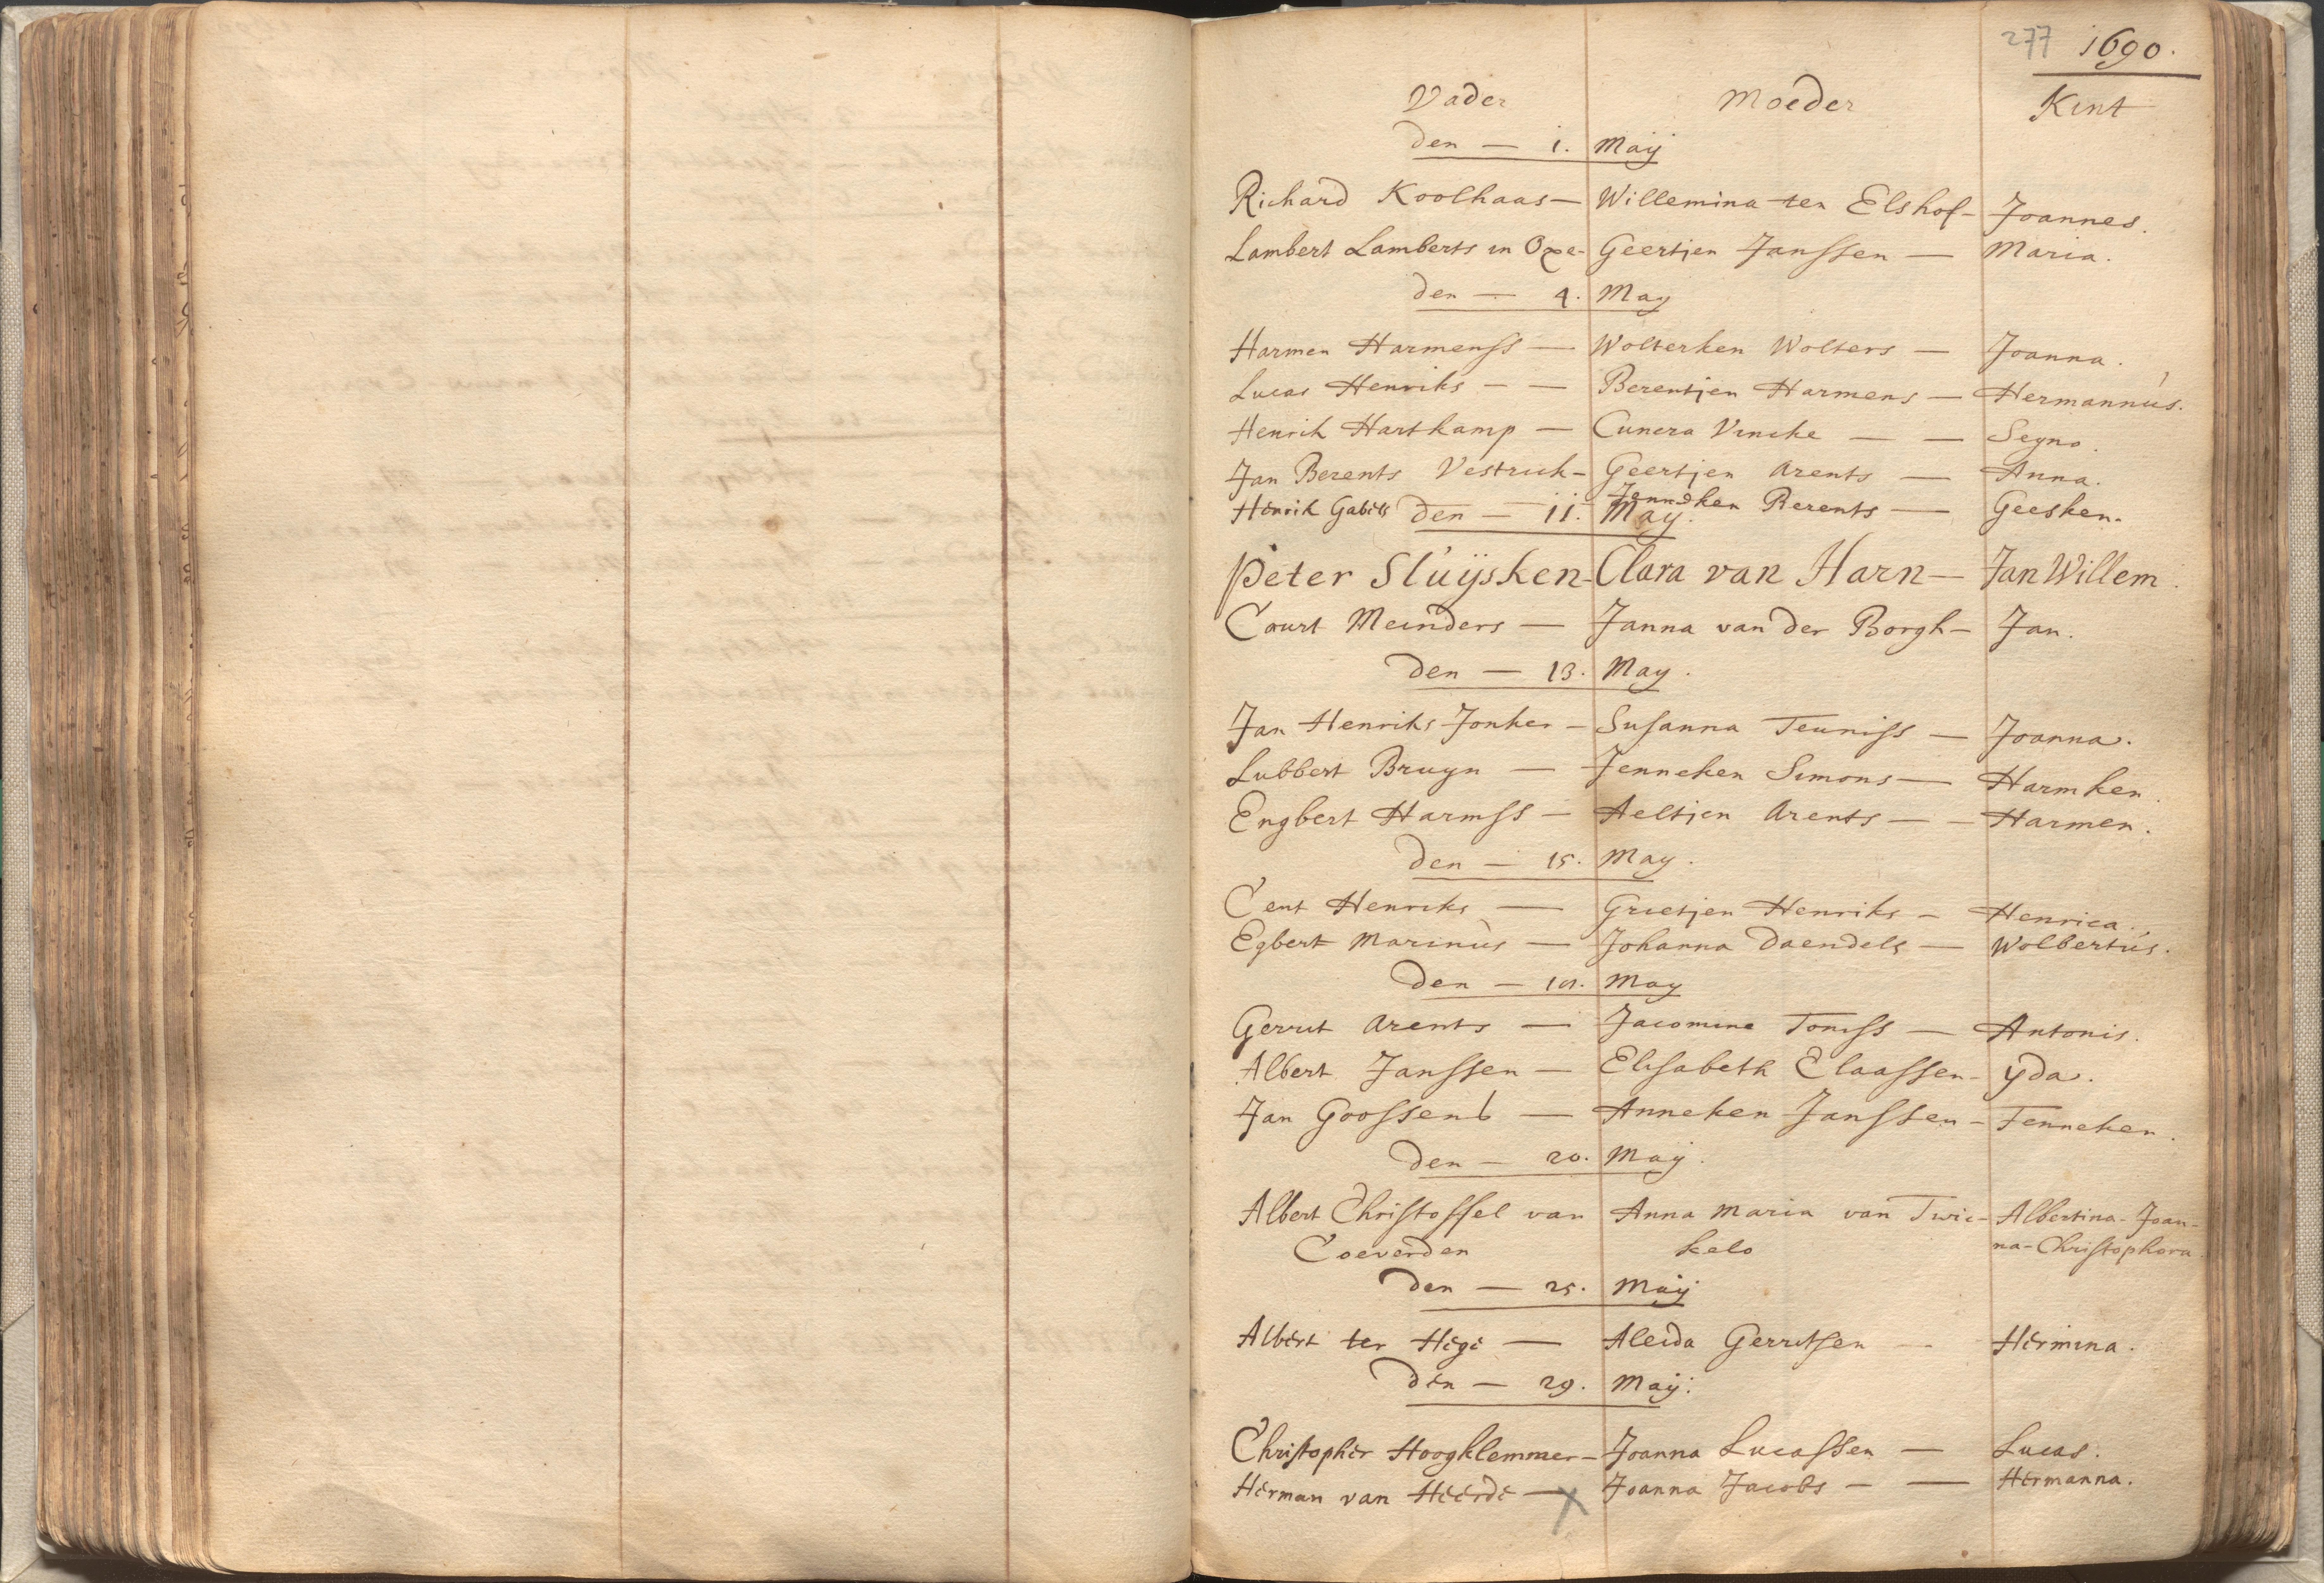 277 1690.
Vader Moeder Kint
den — 1. Maÿ
Richard Koolhaas — Willemina ter Elshof - Joannes.
Lambert Lamberts in Oxe - Geertjen Janssen — Maria.
den — 4. May
Harmen Harmenss — Wolterken Wolters — Joanna.
Lucas Henriks — — Berentjen Harmens — Hermannús.
Henrik Hartkamp — Cunera Vincke — — Segno.
Jan Berents Vestrick - Geertjen Arents — Anna.
Henrik Gabels Jenneken Berents — Geesken.
den — 11. May.
Peter Slúÿsken - Clara van Harn — Jan Willem.
Court Meinders — Janna van der Borgh - Jan.
den — 13. May.
Jan Henriks Jonker - Susanna Teuniss — Joanna.
Lubbert Bruyn — Jenneken Simons — Harmken.
Engbert Harmss — Aeltjen Arents — - Harmen.
den — 15. May.
Cent Henriks — Grietjen Henriks - Henrica.
Egbert Marinùs — Johanna Daendels — Wolbertús.
den — May
Gerrit Arents — Jacomine Toniss — Antonis.
Albert Janssen — Elisabeth Claassen - ÿda.
Jan Goossens — Anneken Janssen - Tenneken.
den — 20. Maÿ.
Albert Christoffel van Anna Maria van Twic- Albertina-Joan-
Coeverden kelo na-Christophora.
den — 25. Maÿ
Albert ter Hege — Aleida Gerritsen — Hermina.
den — 29. Maÿ.
Christopher Hoogklemmer - Joanna Lucassen — Lucas.
Herman van Heerde — X Joanna Jacobs - — Hermanna.